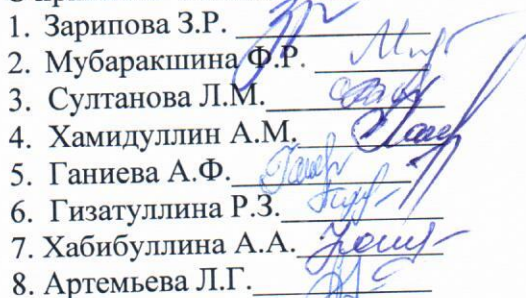 1. Зарипова З.Р.
2. Мубаракшина Ф.Р.
3. Султанова Л.М.
4. Хамидуллин А.М.
5. Ганиева А.Ф.
6. Гизатуллина Р.З.
7. Хабибуллина А.А.
8. Артемьева Л.Г.